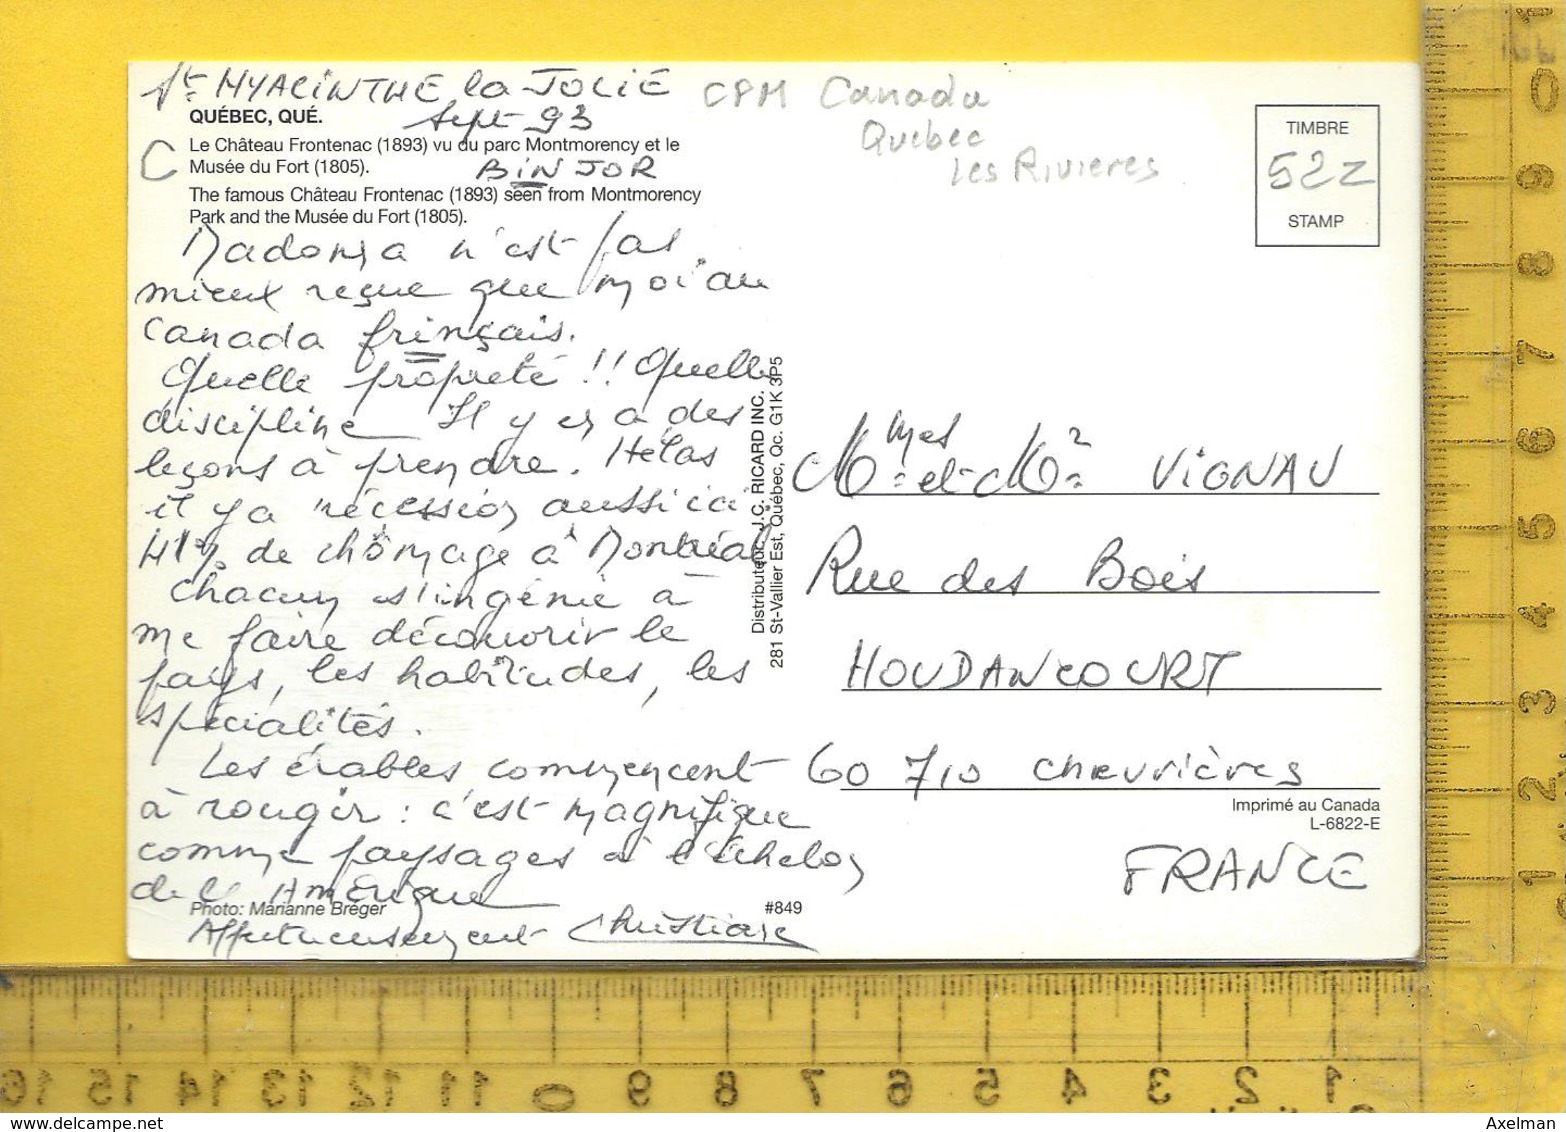 St HYACINTHE la JOLIE
Sept 93
QUÉBEC, QUÉ.
Le Château Frontenac (1893) vu du parc Montmorency et le
Musée du Fort (1805).
BINJOR
The famous Château Frontenac (1893) seen from Montmorency
Park and the Musée du Fort (1805).
C
Madonna n'est pas
mieux reçue que moi au
Canada frinçais.
Quelle propreté !! Quelle
discipline Il y en a des
leçons à prendre. Hélas
il y a récession aussi ici
41% de chômage à Montréal
Chacun s'ingénie à
me faire découvrir le
pays, les habitudes, les
spécialités.
Les érables commencent
à rougir : c'est magnifique
comme paysages à l'échelon
de l'Amérique
Photo: Marianne Breger
#849
Affectueusement Christiane
CPM Canada
Quebec
Les Rivieres
TIMBRE
522
STAMP
Distributeur: J.C. RICARD INC.
281 St-Vallier Est, Québec, Qc. G1K 3P5
Mmes et Mr VIGNAU
Rue des Bois
HOUDANCOURT
60 710 Chevrières
Imprimé au Canada
L-6822-E
FRANCE
0 1 2 3 4 5 6 7 8 9 0 1
16 15 14 13 12 11 0 9 8 7 6 5 4 3 2 1
www.delcampe.net
Axelman